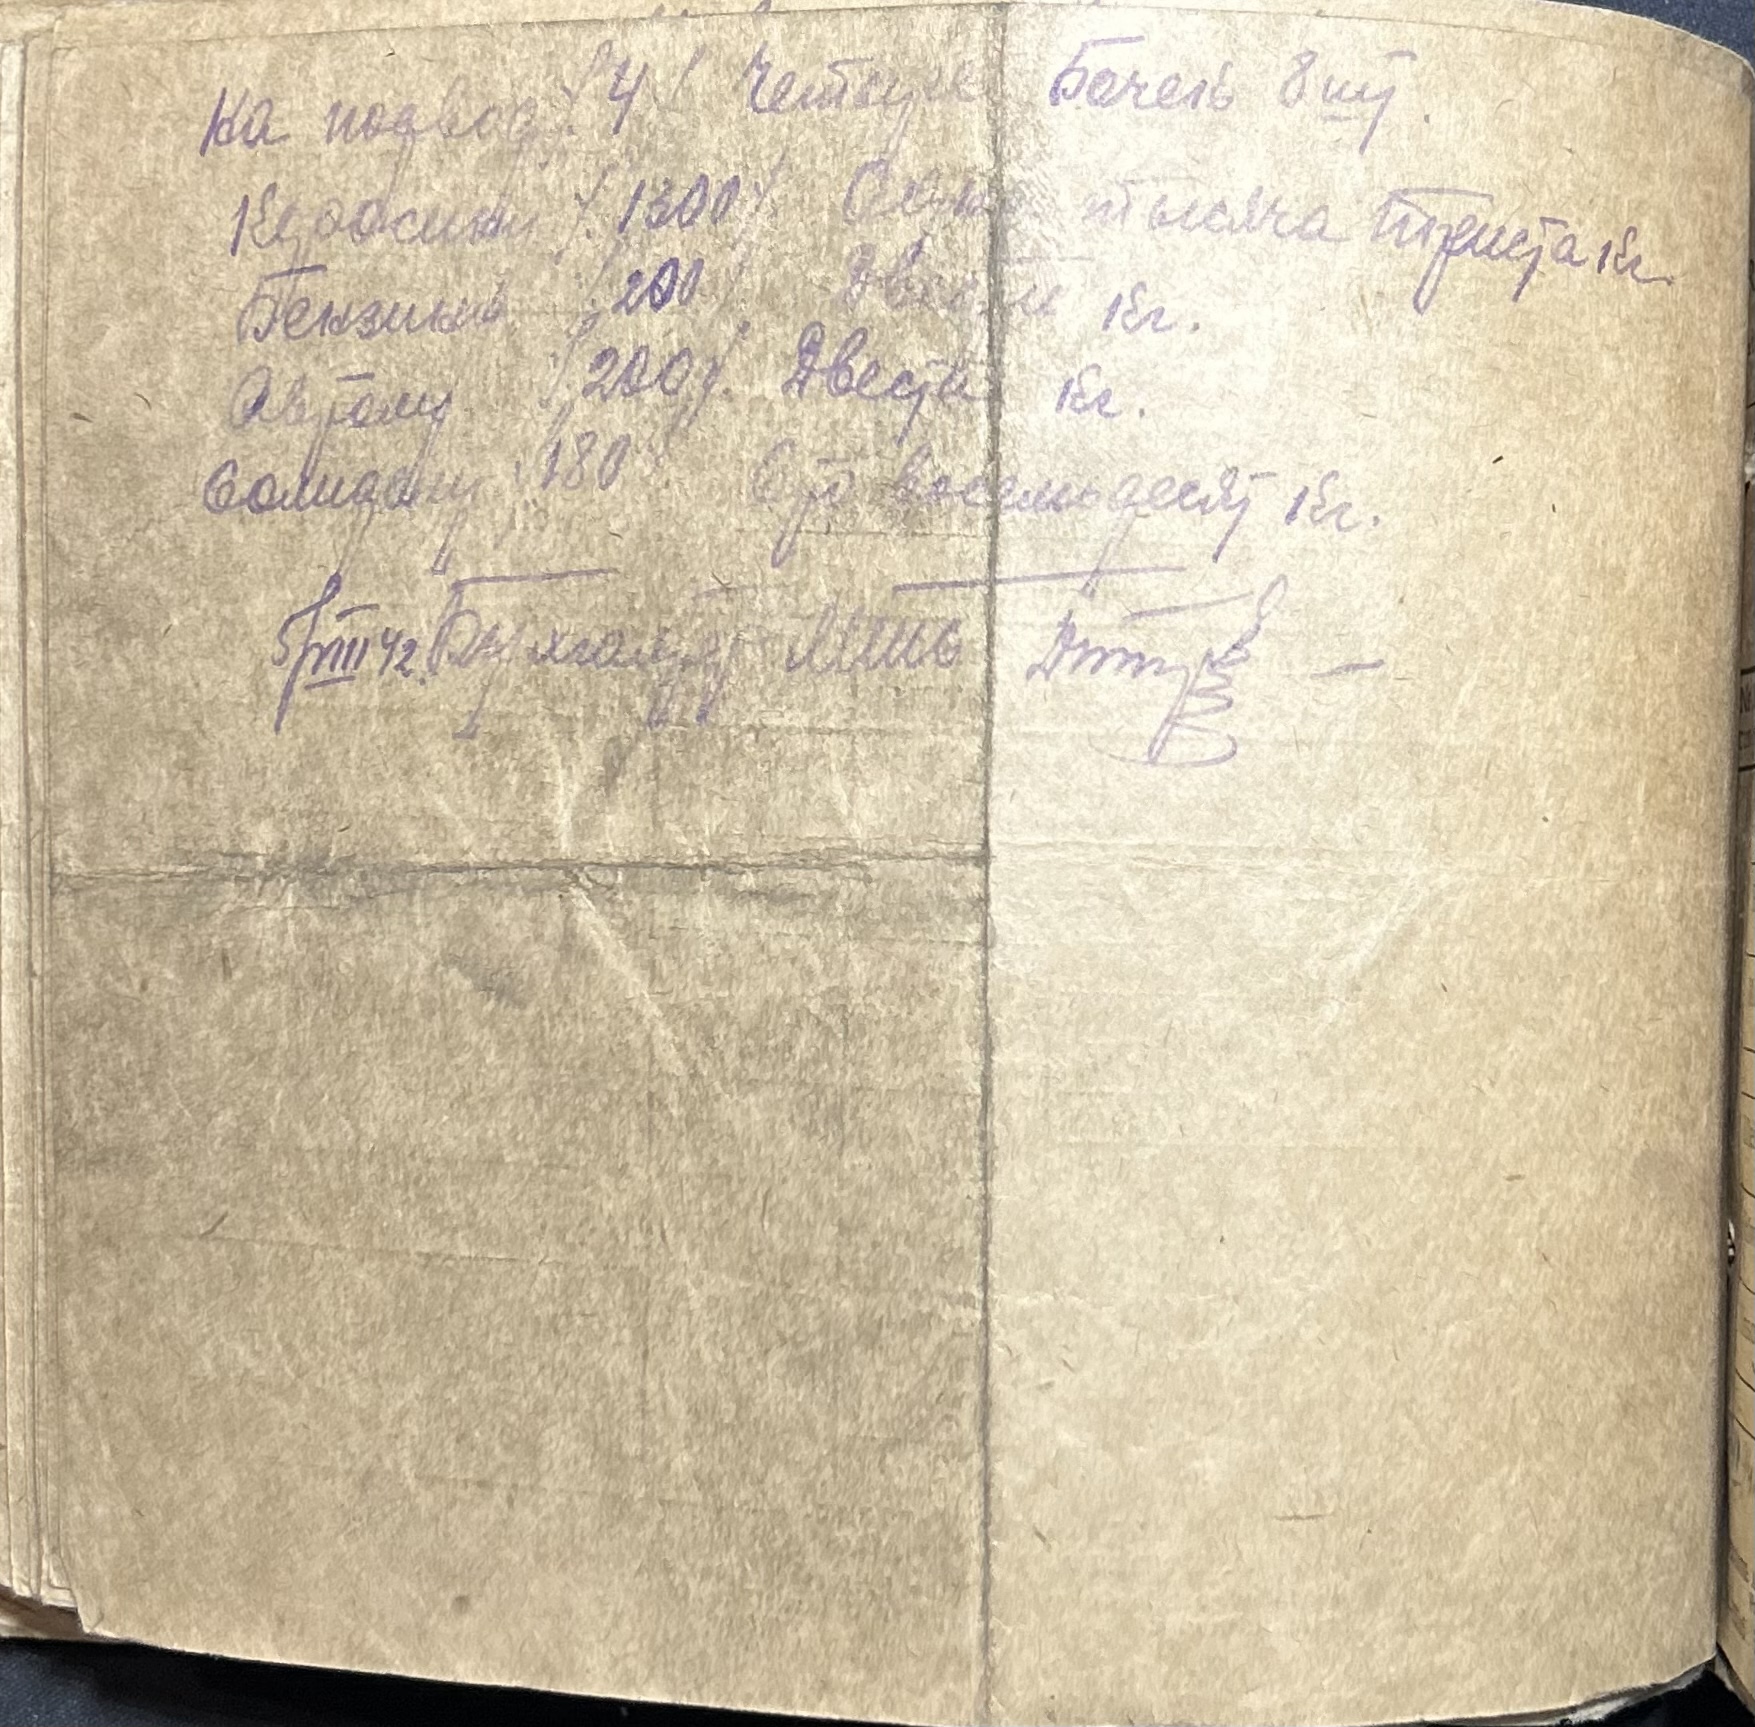 На подвод /4/ Четыре Бочек 8 шт.
Керосину /1300/ Одна тысяча триста кг
Бензина /200/ Двести кг.
Автолу /200/ Двести кг.
Солидолу /180/ Сто восемьдесят кг.
5/VIII 42. Бухгалтер